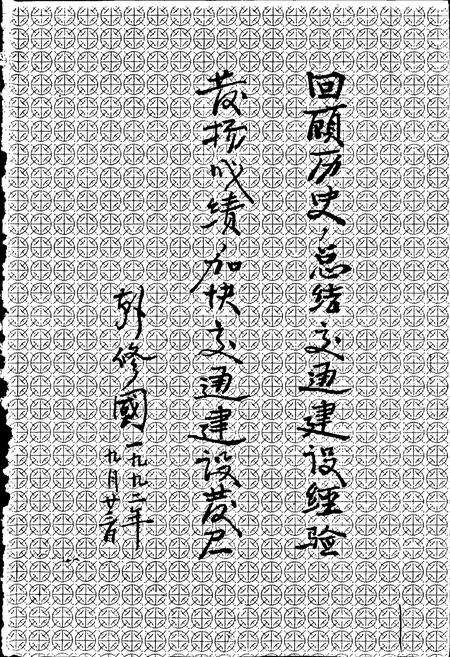 回顾历史，总结交通建设經验
發扬成绩加快交通建设發展
修國
一九九二年
九月廿